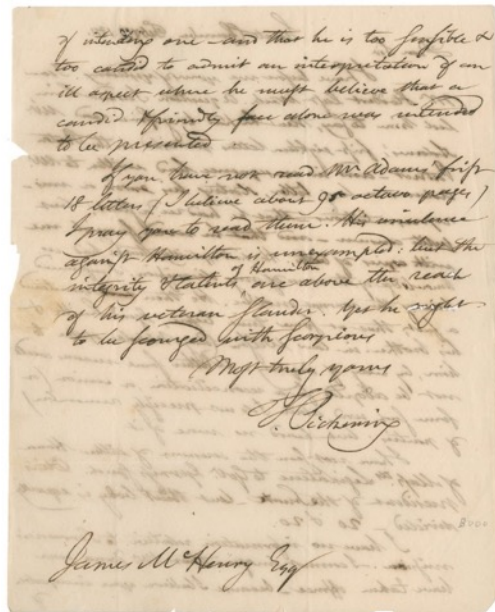 of intending one – and that he is too sensible &
too candid to admit an interpretation of an
ill aspect where he must believe that a
candid & friendly face alone was intended
to be presented
If you have not read Mr Adams' first
18 letters (I believe about 95 octavo pages)
I pray you to read them. His virulence
against Hamilton is unexampled. but the
integrity & talents of Hamilton are above the reach
of his veteran slander. Yet he ought
to be scourged with scorpions
Most truly yours
T. Pickering
James McHenry Esqr